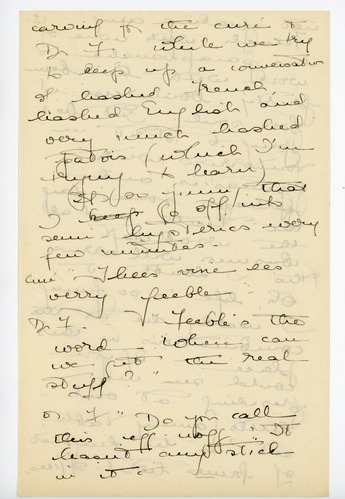 carving for the curé &
Dr. F. while we try
to keep up a conversation
of hashed French,
hashed English and
very much hashed
patois (which I'm
trying to learn)
It's so funny that
I keep go off into
semi hysterics every
few minutes.
curé "Thees vine ees
verry feeble"
Dr. F. "Feeble's the
word. When can
we get the real
stuff?"
or F "Do you call
this eff noff". "It
hasnt any stick
in it